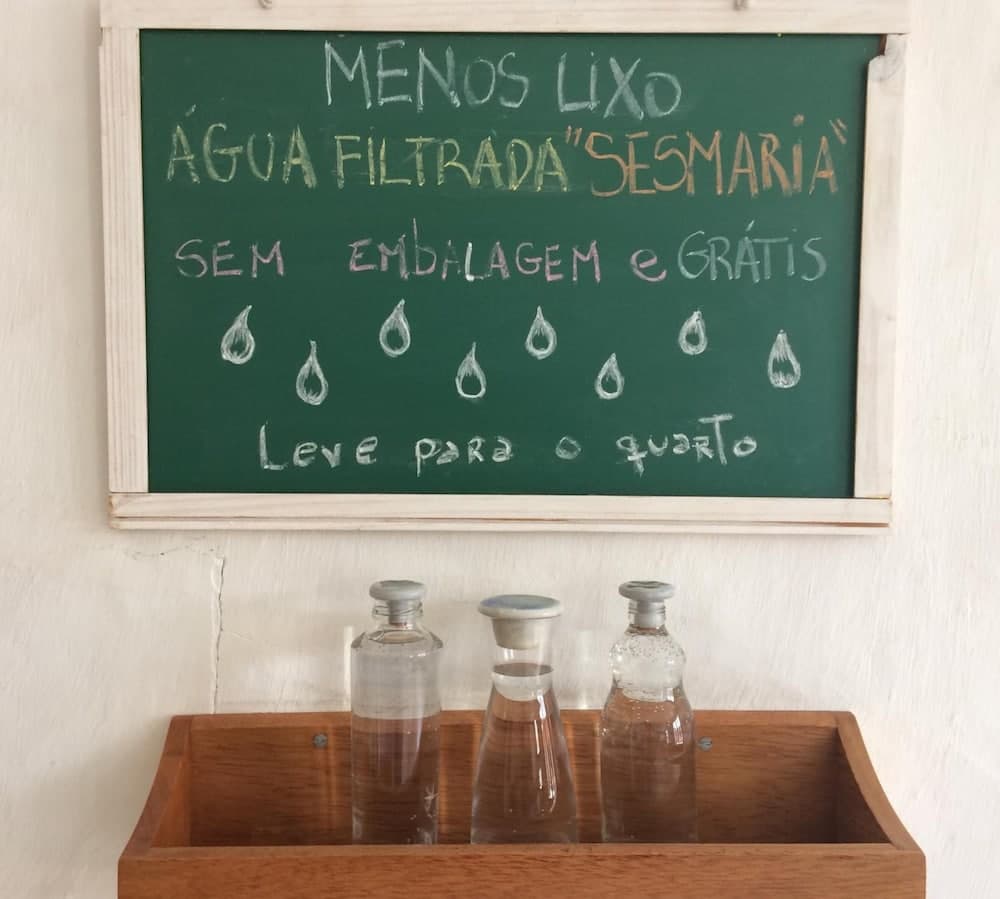 MENOS LIXO
ÁGUA FILTRADA "SESMARIA"
SEM EMbALAGEM e GRÁTIS
Leve para o quarto